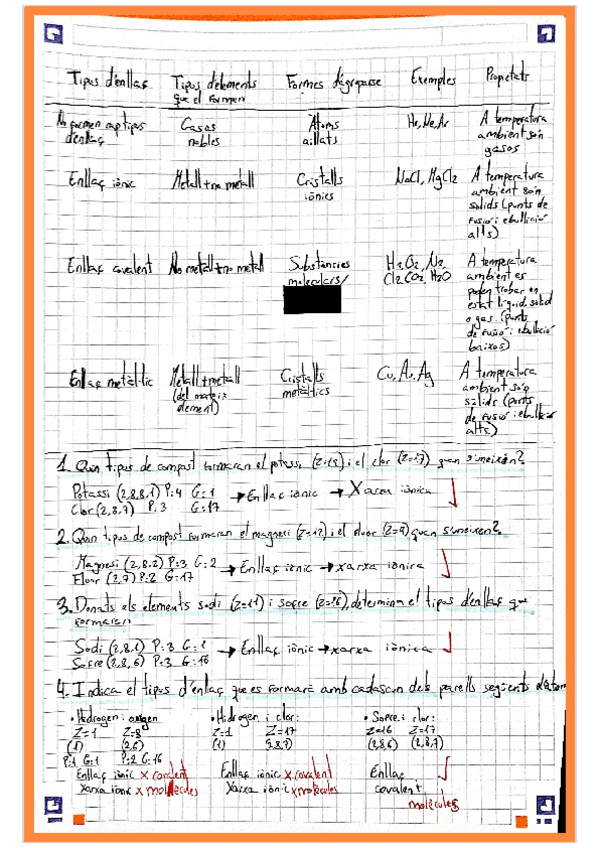 Tipus d'enllaç Tipus d'elements Formes d'agrupar-se Exemples Propietats
que el formen
No formen cap tipus Gasos Àtoms He, Ne, Ar A temperatura
d'enllaç nobles aïllats ambient són
gasos
Enllaç iònic Metall + no metall Cristalls NaCl, MgCl2 A temperatura
iònics ambient són
sòlids (punts de
fusió i ebullició
alts)
Enllaç covalent No metall + no metall Substàncies H2, O2, N2, A temperatura
moleculars/ Cl2, CO2, H2O ambient es
poden trobar en
estat líquid, sòlid
o gas (punts
de fusió i ebullició
baixos)
Enllaç metàl·lic Metall + metall Cristalls Cu, Au, Ag A temperatura
(del mateix metàl·lics ambient són
element) sòlids (punts
de fusió i ebullició
alts)
1. Quin tipus de compost formaran el potassi (Z=15) i el clor (Z=17) quan s'uneixin?
Potassi (2,8,8,1) P:4 G:1 → Enllaç iònic → Xarxa iònica
Clor (2,8,7) P:3 G:17
2. Quin tipus de compost formaran el magnesi (Z=12) i el fluor (Z=9) quan s'uneixen?
Magnesi (2,8,2) P:3 G:2 → Enllaç iònic → xarxa iònica
Fluor (2,7) P:2 G:17
3. Donats els elements sodi (Z=11) i sofre (Z=16), determina el tipus d'enllaç que
formaran
Sodi (2,8,1) P:3 G:1 → Enllaç iònic → xarxa iònica
Sofre (2,8,6) P:3 G:16
4. Indica el tipus d'enllaç que es formarà amb cadascun dels parells següents
• Hidrogen i oxigen • Hidrogen i clor: • Sofre i clor:
Z=1 Z=8 Z=1 Z=17 Z=16 Z=17
(1) (2,6) (1) (2,8,7) (2,8,6) (2,8,7)
P:1 G:1 P:2 G:16
Enllaç iònic x covalent Enllaç iònic x covalent Enllaç
Xarxa iònic x molècules Xarxa iònic x molècules covalent
molècules